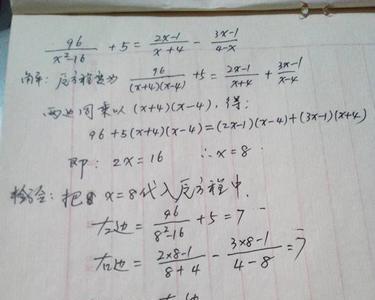 96/(x²-16) + 5 = (2x-1)/(x+4) - (3x-1)/(4-x)
解: 原方程变为 96/((x+4)(x-4)) + 5 = (2x-1)/(x+4) + (3x-1)/(x-4)
两边同乘以 (x+4)(x-4), 得:
96 + 5(x+4)(x-4) = (2x-1)(x-4) + (3x-1)(x+4)
即: 2x = 16 ∴ x = 8
检验: 把 x = 8 代入原方程中.
左边 = 96/(8²-16) + 5 = 7
右边 = (2×8-1)/(8+4) - (3×8-1)/(4-8) = 7